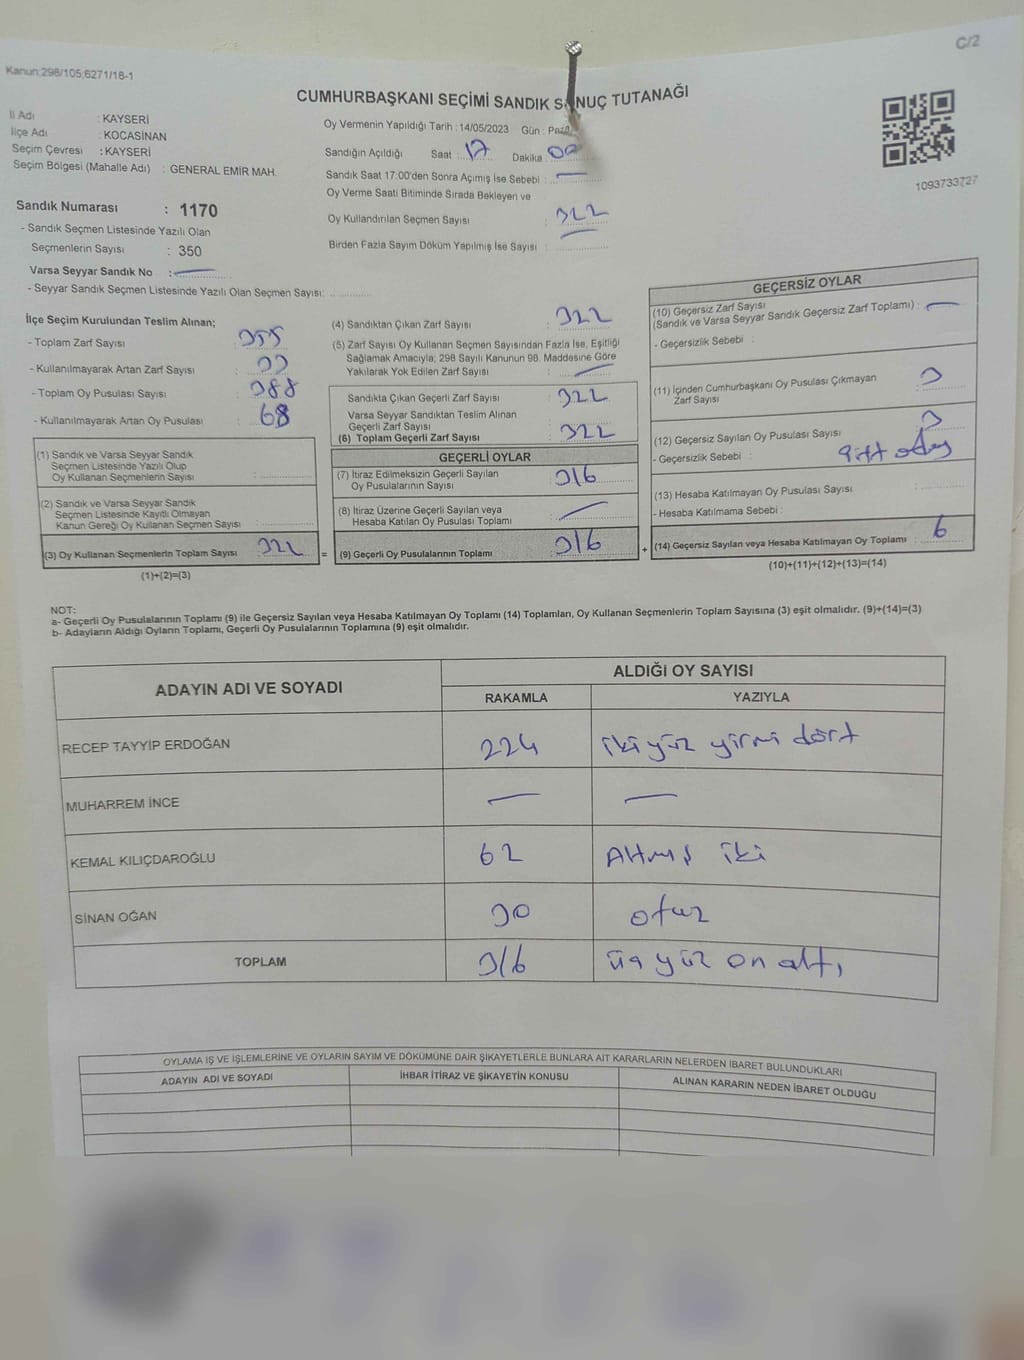 C/2
Kanun:298/105;6271/18-1
CUMHURBAŞKANI SEÇİMİ SANDIK SONUÇ TUTANAĞI
İl Adı : KAYSERİ
İlçe Adı : KOCASİNAN
Seçim Çevresi : KAYSERİ
Seçim Bölgesi (Mahalle Adı) : GENERAL EMİR MAH.
Oy Vermenin Yapıldığı Tarih : 14/05/2023 Gün :
Sandığın Açıldığı Saat : 17 Dakika 00
Sandık Saat 17:00'den Sonra Açımış İse Sebebi : —
Oy Verme Saati Bitiminde Sırada Bekleyen ve
Oy Kullandırılan Seçmen Sayısı : 322
Birden Fazla Sayım Döküm Yapılmış İse Sayısı : —
1093733727
Sandık Numarası : 1170
- Sandık Seçmen Listesinde Yazılı Olan
Seçmenlerin Sayısı : 350
Varsa Seyyar Sandık No : —
- Seyyar Sandık Seçmen Listesinde Yazılı Olan Seçmen Sayısı:
İlçe Seçim Kurulundan Teslim Alınan;
- Toplam Zarf Sayısı 355
- Kullanılmayarak Artan Zarf Sayısı 33
- Toplam Oy Pusulası Sayısı 388
- Kullanılmayarak Artan Oy Pusulası 68
(1) Sandık ve Varsa Seyyar Sandık
Seçmen Listesinde Yazılı Olup
Oy Kullanan Seçmenlerin Sayısı :
(2) Sandık ve Varsa Seyyar Sandık
Seçmen Listesinde Kayıtlı Olmayan
Kanun Gereği Oy Kullanan Seçmen Sayısı :
(3) Oy Kullanan Seçmenlerin Toplam Sayısı 322
(1)+(2)=(3)
(4) Sandıktan Çıkan Zarf Sayısı : 322
(5) Zarf Sayısı Oy Kullanan Seçmen Sayısından Fazla İse, Eşitliği
Sağlamak Amacıyla; 298 Sayılı Kanunun 98. Maddesine Göre
Yakılarak Yok Edilen Zarf Sayısı : —
Sandıkta Çıkan Geçerli Zarf Sayısı : 322
Varsa Seyyar Sandıktan Teslim Alınan
Geçerli Zarf Sayısı
(6) Toplam Geçerli Zarf Sayısı : 322
GEÇERLİ OYLAR
(7) İtiraz Edilmeksizin Geçerli Sayılan
Oy Pusulalarının Sayısı : 316
(8) İtiraz Üzerine Geçerli Sayılan veya
Hesaba Katılan Oy Pusulası Toplamı : —
= (9) Geçerli Oy Pusulalarının Toplamı 316 +
GEÇERSİZ OYLAR
(10) Geçersiz Zarf Sayısı
(Sandık ve Varsa Seyyar Sandık Geçersiz Zarf Toplamı) : —
- Geçersizlik Sebebi :
(11) İçinden Cumhurbaşkanı Oy Pusulası Çıkmayan
Zarf Sayısı : 3
(12) Geçersiz Sayılan Oy Pusulası Sayısı : 3
- Geçersizlik Sebebi :
(13) Hesaba Katılmayan Oy Pusulası Sayısı :
- Hesaba Katılmama Sebebi :
(14) Geçersiz Sayılan veya Hesaba Katılmayan Oy Toplamı : 6
(10)+(11)+(12)+(13)=(14)
NOT:
a- Geçerli Oy Pusulalarının Toplamı (9) ile Geçersiz Sayılan veya Hesaba Katılmayan Oy Toplamı (14) Toplamları, Oy Kullanan Seçmenlerin Toplam Sayısına (3) eşit olmalıdır. (9)+(14)=(3)
b- Adayların Aldığı Oyların Toplamı, Geçerli Oy Pusulalarının Toplamına (9) eşit olmalıdır.
ADAYIN ADI VE SOYADI ALDIĞI OY SAYISI
RAKAMLA YAZIYLA
RECEP TAYYİP ERDOĞAN 224 iki yüz yirmi dört
MUHARREM İNCE — —
KEMAL KILIÇDAROĞLU 62 Altmış iki
SİNAN OĞAN 30 otuz
TOPLAM 316 üç yüz on altı
OYLAMA İŞ VE İŞLEMLERİNE VE OYLARIN SAYIM VE DÖKÜMÜNE DAİR ŞİKAYETLERLE BUNLARA AİT KARARLARIN NELERDEN İBARET BULUNDUKLARI
ADAYIN ADI VE SOYADI İHBAR İTİRAZ VE ŞİKAYETİN KONUSU ALINAN KARARIN NEDEN İBARET OLDUĞU